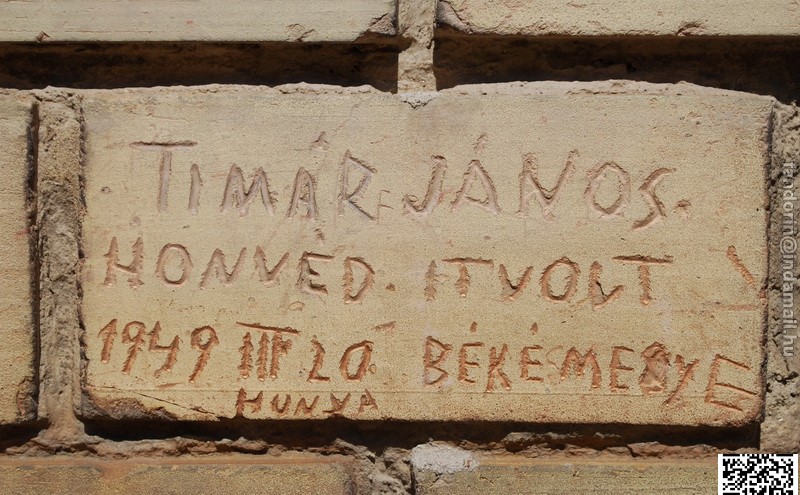 TIMÁR JÁNOS.
HONVÉD. ITVOLT
1949 III 20. BÉKÉSMEGYE
HUNYA
rendorin@indamail.hu